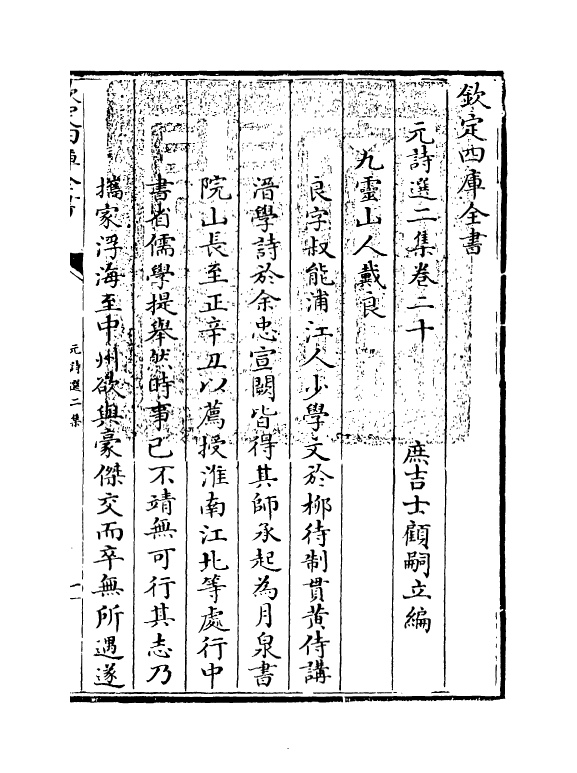 欽定四庫全書
元詩選二集卷二十
庶吉士顧嗣立編
九靈山人戴良
良字叔能浦江人少學文於柳待制貫黄侍講
溍學詩於余忠宣闕皆得其師承起為月泉書
院山長至正辛丑以薦授淮南江北等處行中
書省儒學提舉然時事已不靖無可行其志乃
攜家浮海至中州欲與豪傑交而卒無所遇遂
元詩選二集
一